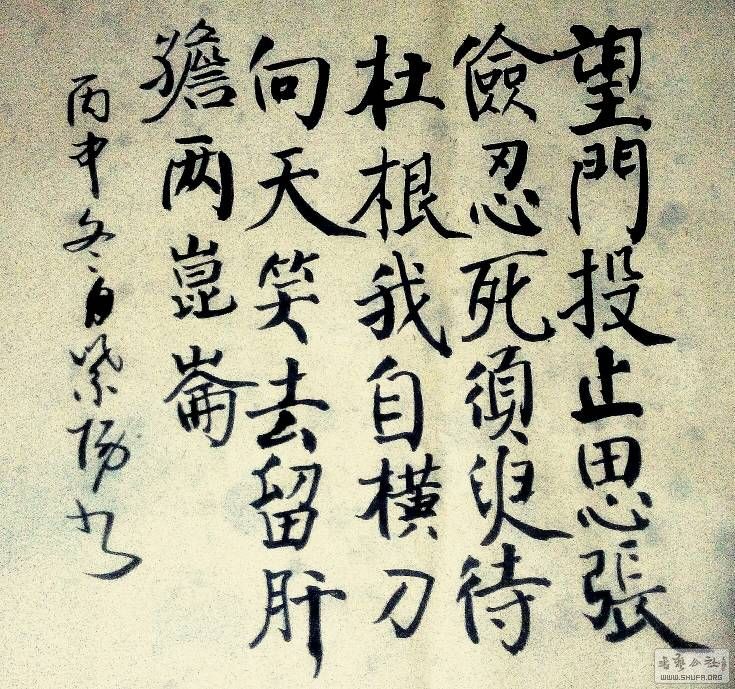 望門投止思張
儉忍死須臾待
杜根我自橫刀
向天笑去留肝
膽两崑崙
丙申冬月紫陽书
WWW.SHUFA.ORG